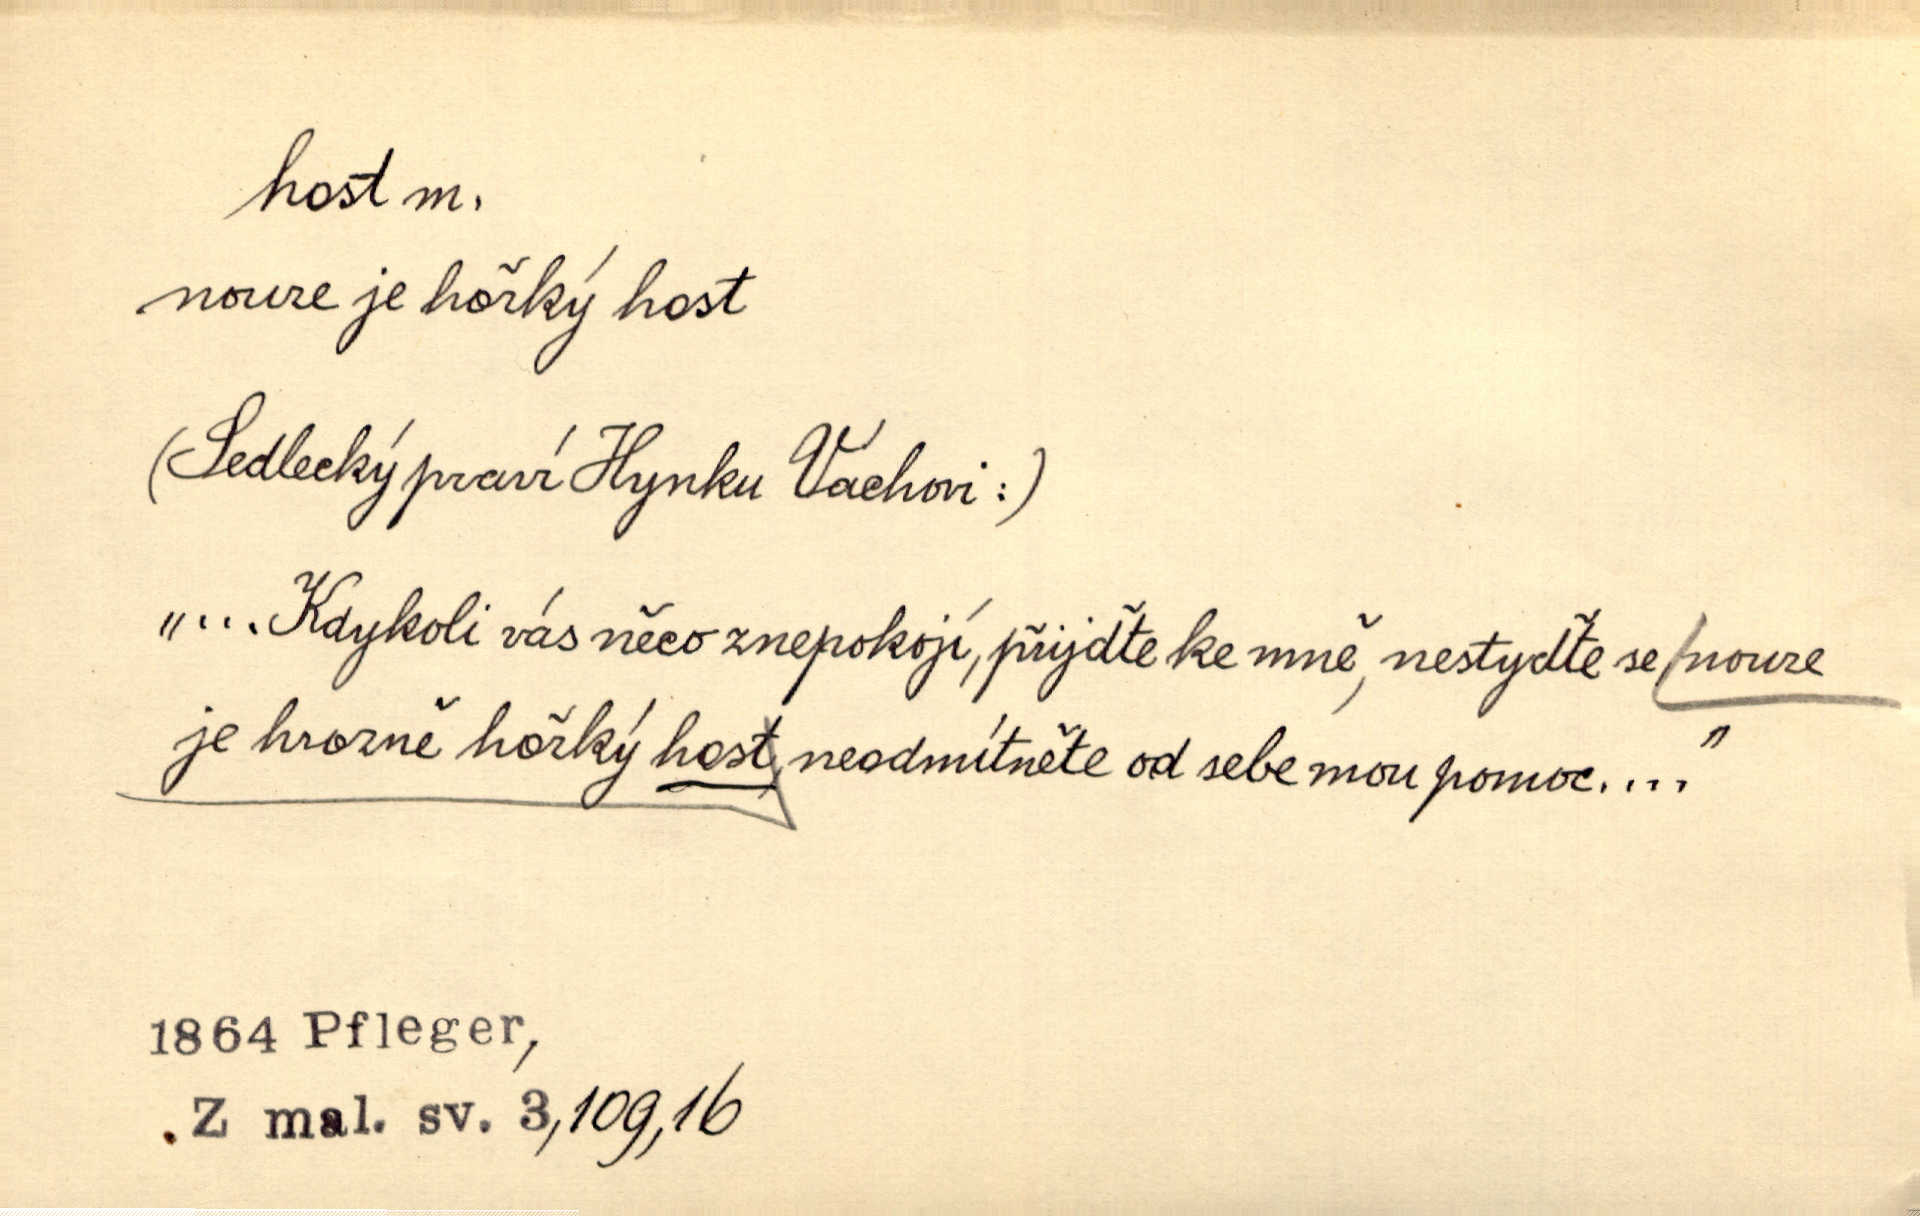 host m.
nouze je hořký host
(Sedlecký praví Hynku Váchovi:)
„... Kdykoli vás něco znepokojí, přijďte ke mně, nestyďte se nouze
je hrozně hořký host, neodmítněte od sebe mou pomoc...."
1864 Pfleger,
Z mal. sv. 3,109,16